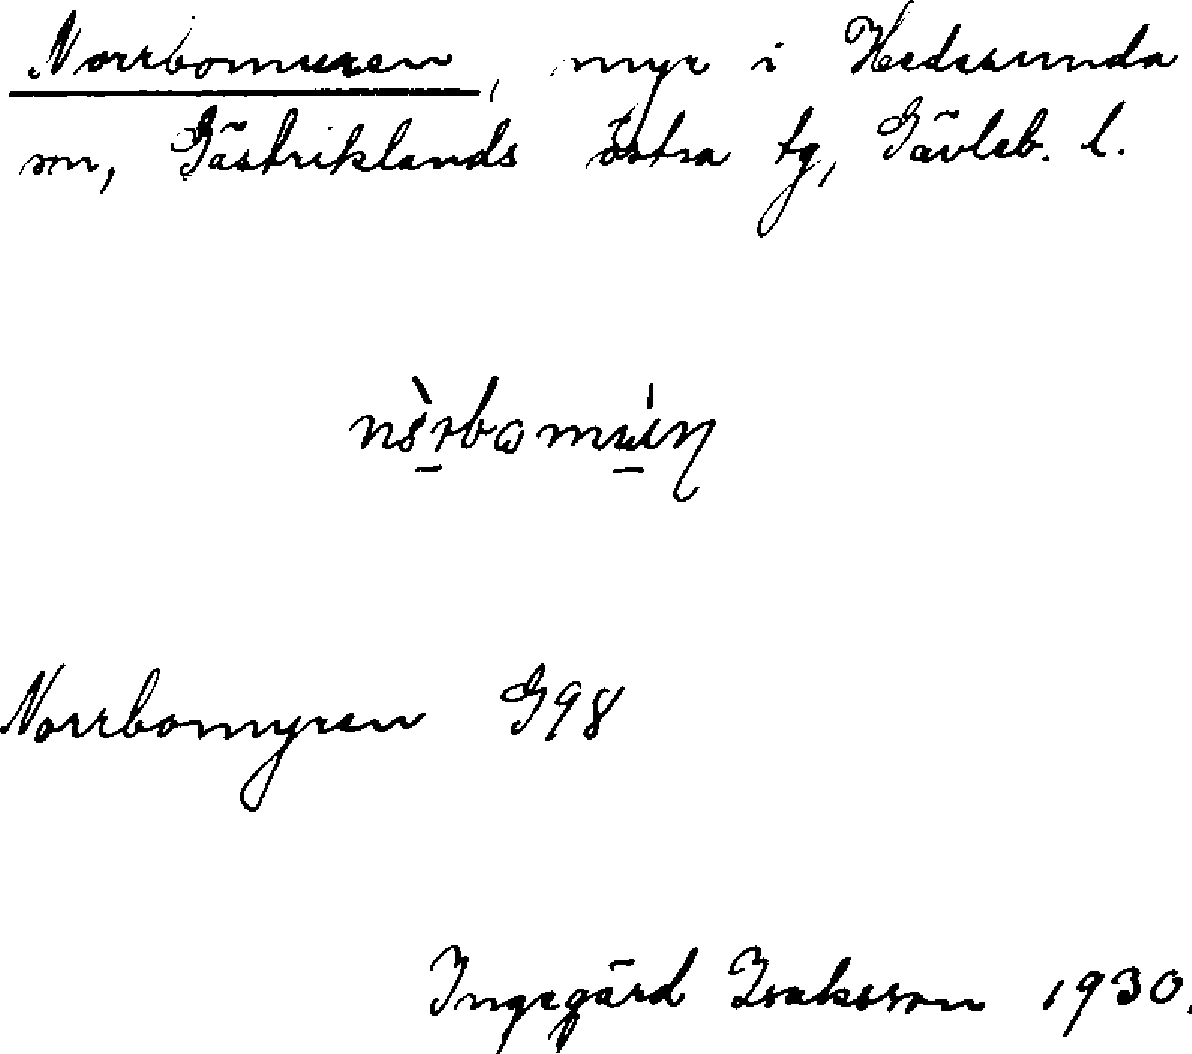 Norrbomuren, myr i Hedesunda
sn, Gästriklands östra tg, Gävleb. l.
Norrbomyren G98
Ingegärd Isaksson 1930.